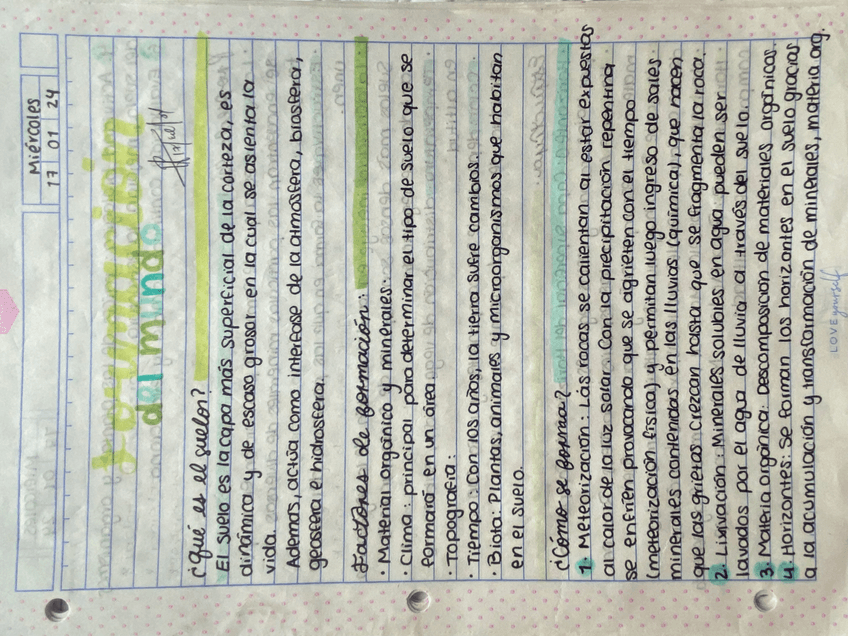 Miércoles
17 01 24
Formación
del mundo
¿Qué es el suelo?
El suelo es la capa más superficial de la corteza, es
dinámica y de escaso grosor en la cual se asienta la
vida.
Además, actúa como interfase de la atmosfera, biosfera,
geosfera e hidrosfera.
Factores de formación:
• Material orgánico y minerales:
• Clima: principal para determinar el tipo de suelo que se
formará en un área.
• Topografía:
• Tiempo: Con los años, la tierra sufre cambios.
• Biota: Plantas, animales y microorganismos que habitan
en el suelo.
¿Cómo se forma?
1. Meteorización: Las rocas se calientan al estar expuestas
al calor de la luz solar. Con la precipitación repentina
se enfrien provocando que se agrieten con el tiempo
(meteorización física) y permitan luego ingreso de sales
minerales contenidas en las lluvias (química), que hacen
que las grietas crezcan hasta que se fragmenta la roca.
2. Lixivación: Minerales solubles en agua pueden ser
lavados por el agua de lluvia a través del suelo.
3. Materia orgánica: Descomposición de materiales orgánicas.
4. Horizontes: Se forman los horizontes en el suelo gracias
a la acumulación y transformación de minerales, materia org.
LOVE yourself